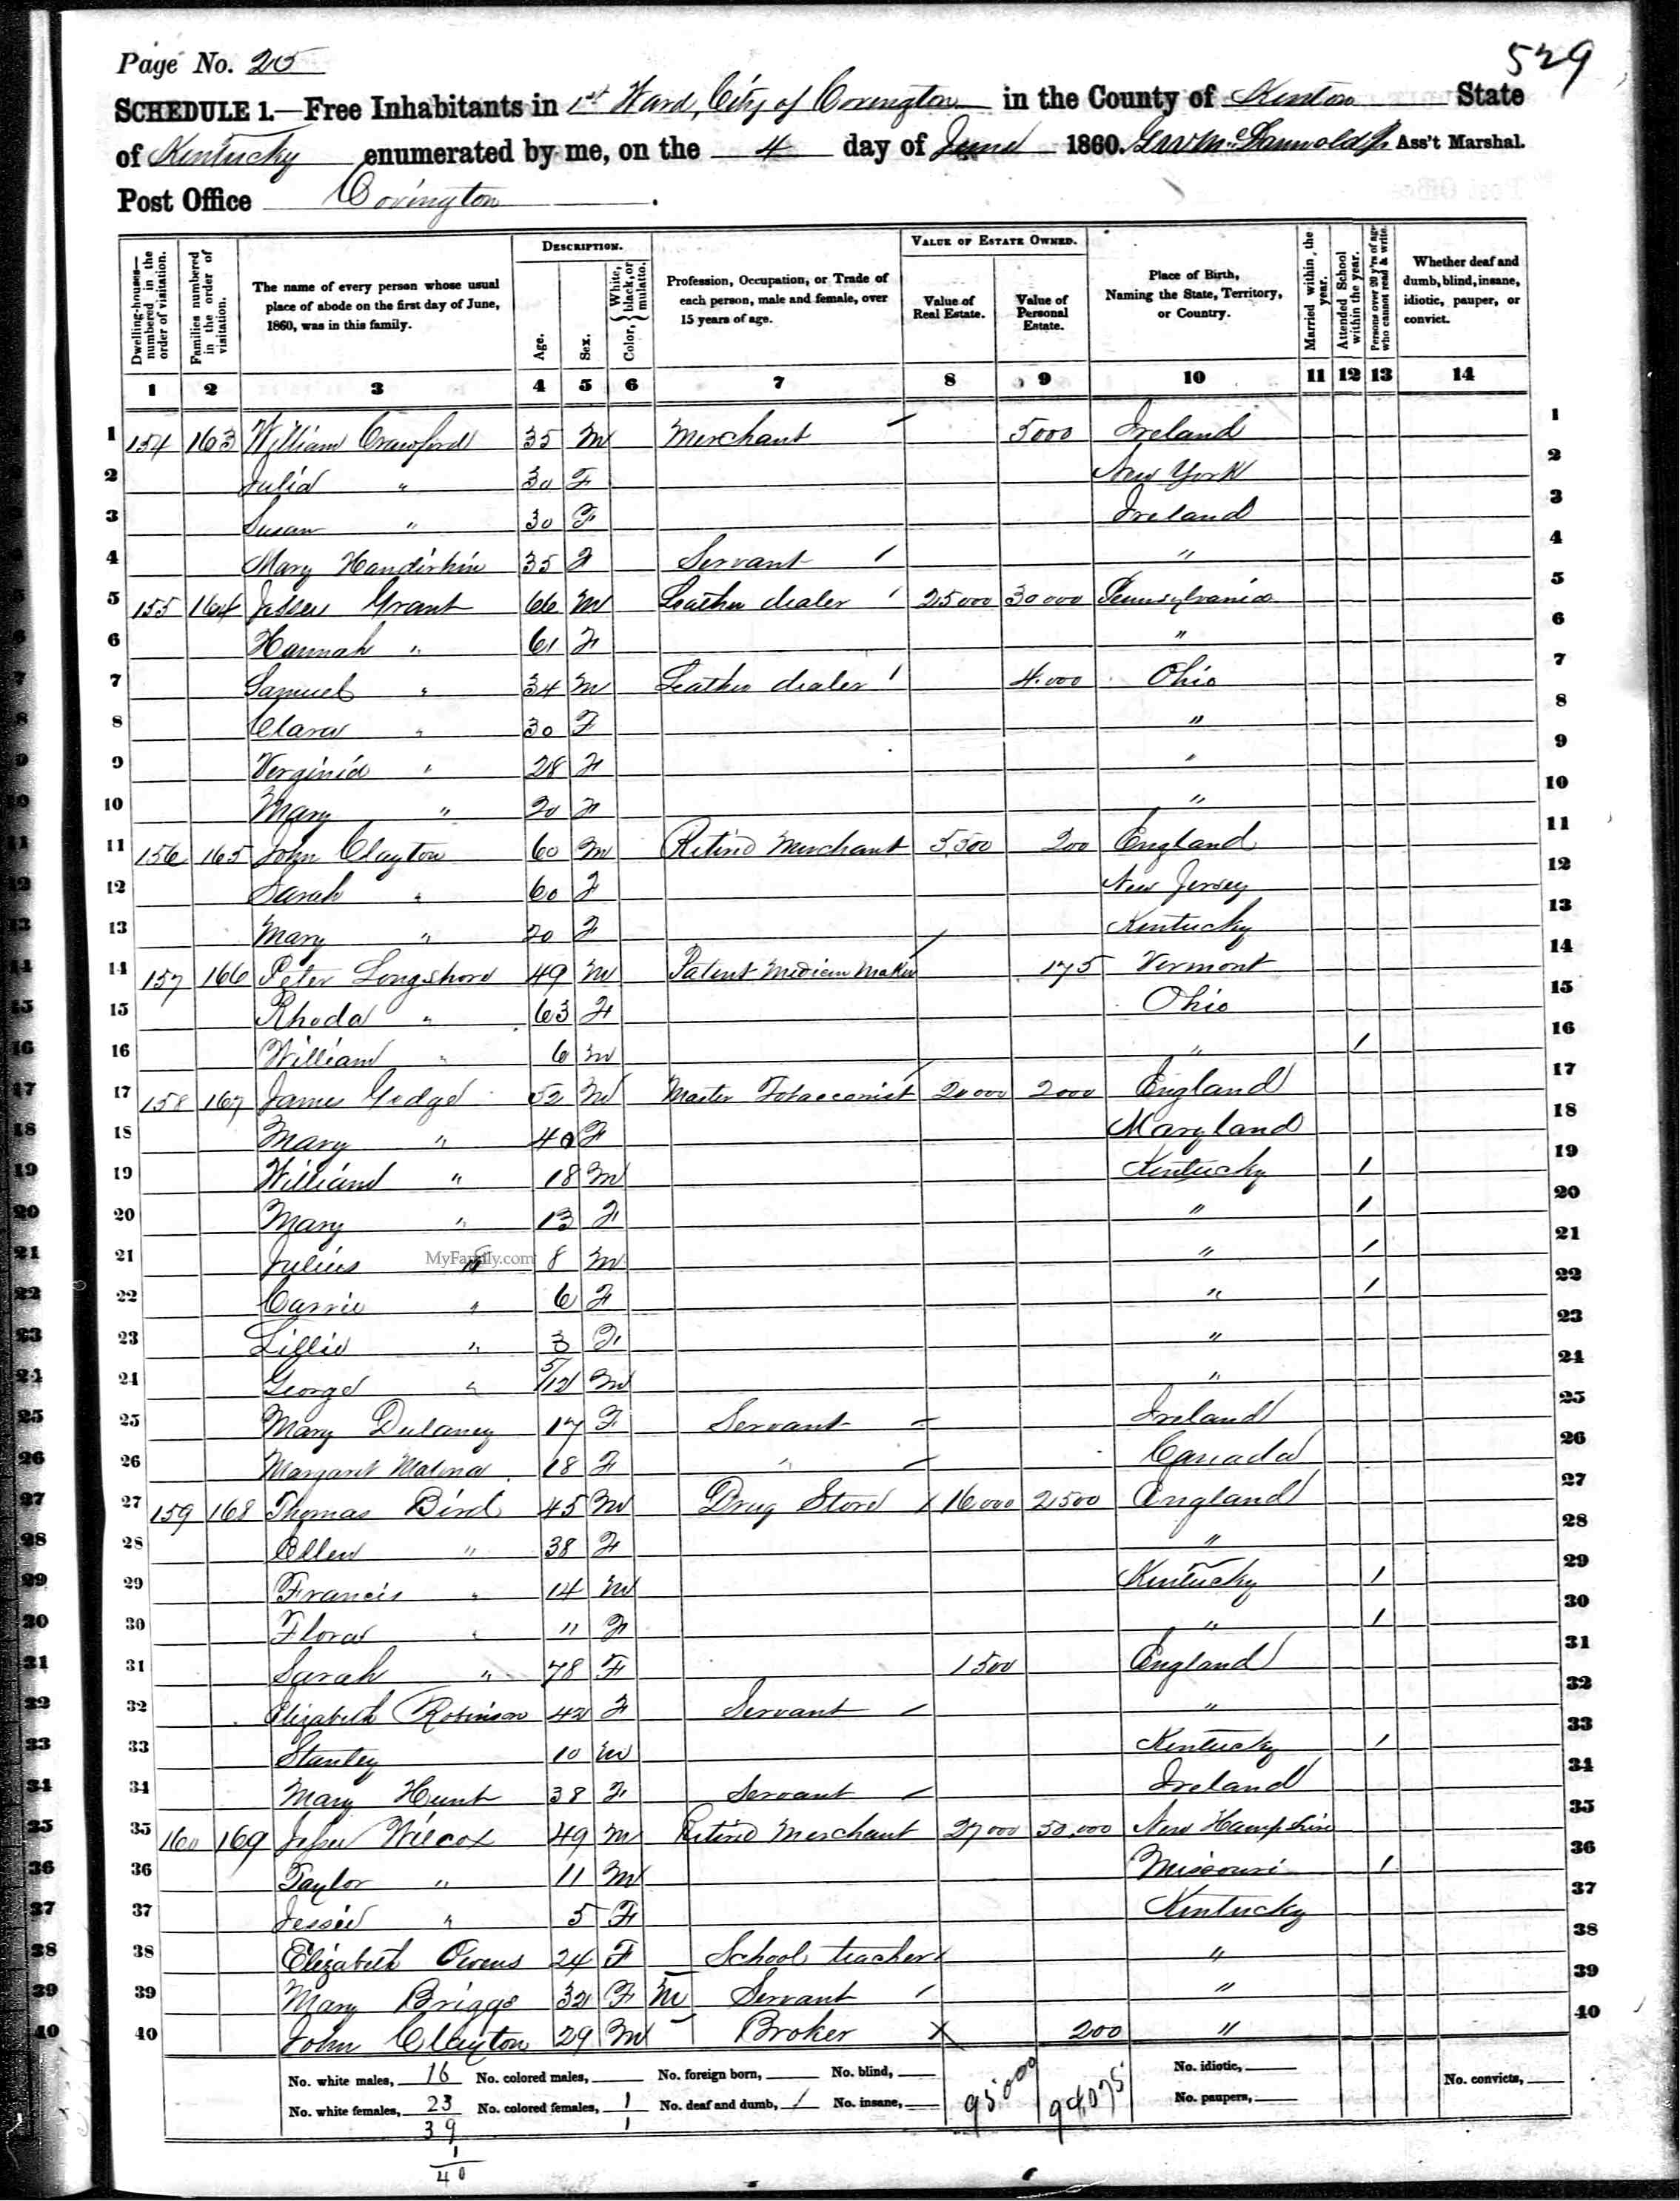 Page No. 25
529
SCHEDULE 1.—Free Inhabitants in 1st Ward, City of Covington in the County of Kenton State
of Kentucky enumerated by me, on the 4 day of June 1860. Ass't Marshal.
Post Office Covington .
Dwelling-houses—numbered in the order of visitation.
Families numbered in the order of visitation.
The name of every person whose usual place of abode on the first day of June, 1860, was in this family.
DESCRIPTION.
Age.
Sex.
Color, { White, black, or mulatto.
Profession, Occupation, or Trade of each person, male and female, over 15 years of age.
VALUE OF ESTATE OWNED.
Value of Real Estate.
Value of Personal Estate.
Place of Birth, Naming the State, Territory, or Country.
Married within the year.
Attended School within the year.
Persons over 20 y'rs of age who cannot read & write.
Whether deaf and dumb, blind, insane, idiotic, pauper, or convict.
1 2 3 4 5 6 7 8 9 10 11 12 13 14
1 154 163 William Crawford 35 m Merchant 5000 Ireland 1
2 Julia " 30 F New York 2
3 Susan " 30 F Ireland 3
4 Mary 35 F Servant " 4
5 155 164 Jesse Grant 66 m Leather dealer 25000 30000 Pennsylvania 5
6 Hannah " 61 F " 6
7 Samuel " 34 m Leather dealer 4.000 Ohio 7
8 Clara " 30 F " 8
9 Verginia " 28 F " 9
10 Mary " 20 F " 10
11 156 165 John Clayton 60 m Retired Merchant 5500 200 England 11
12 Sarah " 60 F New Jersey 12
13 Mary " 20 F Kentucky 13
14 157 166 Peter Longshore 49 m Patent Medicin Maker 175 Vermont 14
15 Rhoda " 63 F Ohio 15
16 William " 6 m " / 16
17 158 167 James Gedge 52 m Master Tobacconist 20000 2000 England 17
18 Mary " 40 F Maryland 18
19 William " 18 m Kentucky / 19
20 Mary " 13 F " / 20
21 Julius " 8 m " / 21
MyFamily.com
22 Carrie " 6 F " / 22
23 Lillie " 3 F " 23
24 George " 5/12 m " 24
25 Mary Dulaney 17 F Servant Ireland 25
26 Margaret 18 F " Canada 26
27 159 168 Thomas Bird 45 m Drug Store 16000 2500 England 27
28 Ellen " 38 F " 28
29 Francis " 14 m Kentucky / 29
30 Flora " 11 F " / 30
31 Sarah " 78 F 1500 England 31
32 Elizabeth Robinson 42 F Servant " 32
33 Stanley 10 m Kentucky / 33
34 Mary Hunt 38 F Servant Ireland 34
35 160 169 Jesse Wilcox 49 m Retired Merchant 27000 50.000 New Hampshire 35
36 Taylor " 11 m Missouri / 36
37 Jessie " 5 F Kentucky 37
38 Elizabeth Owens 24 F School teacher " 38
39 Mary Briggs 32 F M Servant " 39
40 John Clayton 29 m Broker X 200 " 40
No. white males, 16 No. colored males, No. foreign born, No. blind, No. idiotic, No. convicts,
No. white females, 23 No. colored females, 1 No. deaf and dumb, / No. insane, 95000 94075 No. paupers,
39 1
1
40